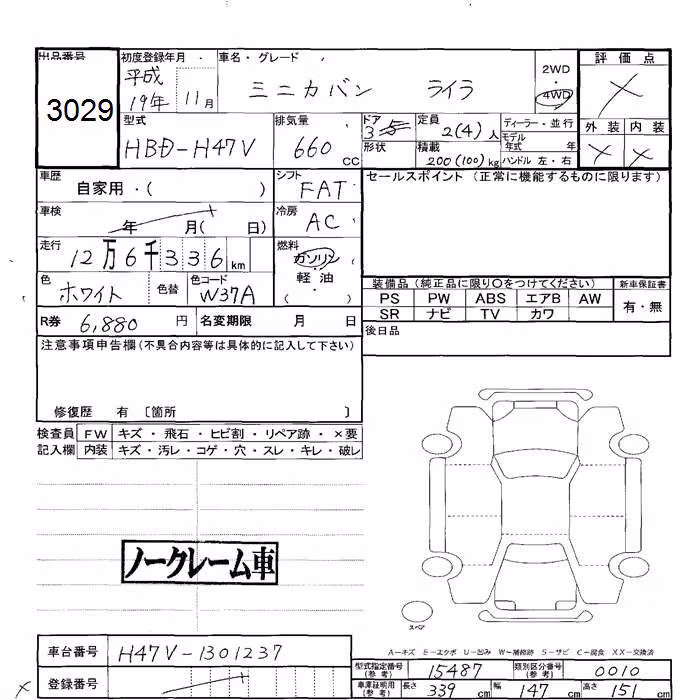 出品番号
3029
初度登録年月
平成
19年 11月
車名・グレード
ミニカバン ライラ
2WD
・
4WD
評価点
×
外装 内装
× ×
型式
HBD-H47V
排気量
660 CC
ドア
3 5
形状
定員
2(4)人
積載
200(100)kg
ディーラー・並行
モデル
年式 年
ハンドル 左・右
車歴
自家用・( )
シフト
FAT
セールスポイント (正常に機能するものに限ります)
車検
年 月( 日)
冷房
AC
走行
12万6千336km
燃料
ガソリン
軽油
( )
色
ホワイト
色替
色コード
W37A
装備品(純正品に限り〇をつけてください)
新車保証書
PS PW ABS エアB AW
SR ナビ TV カワ
有・無
R券 6,880円
名変期限 月 日
後日品
注意事項申告欄(不具合内容等は具体的に記入して下さい)
修復歴 有 〔箇所 〕
検査員 FW キズ・飛石・ヒビ割・リペア跡・×要
記入欄 内装 キズ・汚レ・コゲ・穴・スレ・キレ・破レ
ノークレーム車
スペア
A-キズ E-エクボ U-凹み W-補修跡 S-サビ C-腐食 XX-交換済
車台番号 H47V-1301237
登録番号
型式指定番号
(参考)
15487
類別区分番号
(参考)
0010
車庫証明用
(参考)
長さ 339cm 幅 147cm 高さ 151cm
×